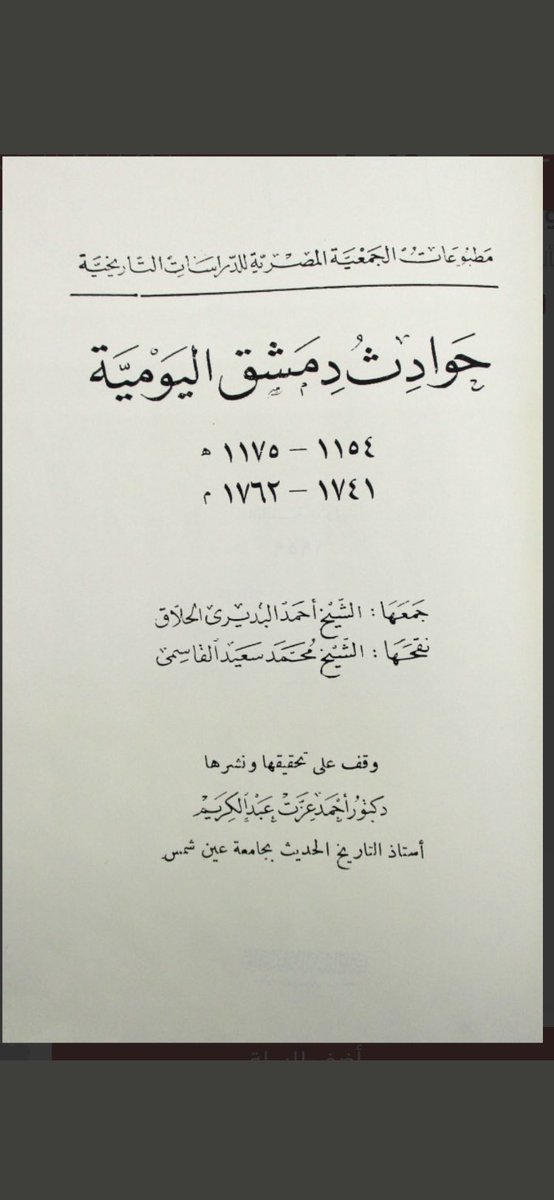 مطبوعات الجمعية المصرية للدراسات التاريخية
حَوادِث دِمَشق اليَوْميَّة
١١٥٤ – ١١٧٥ ه
١٧٤١ – ١٧٦٢ م
جمعَهَا : الشيخ أحمد البديرى الحلاق
نقحَهَا : الشيخ محمَد سعيد القاسمى
وقف على تحقيقها ونشرها
دكتور أحمد عزت عبد الكريم
أستاذ التاريخ الحديث بجامعة عين شمس